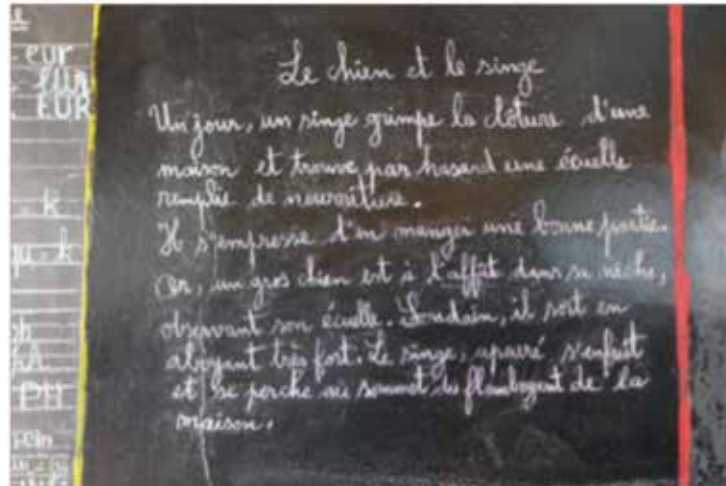 e
eur
EUR
k
k
ph
PH
sein
Le chien et le singe
Un jour, un singe grimpe la clôture d'une
maison et trouve par hasard une écuelle
remplie de nourriture.
Il s'empresse d'en manger une bonne partie.
Or, un gros chien est à l'affût dans sa niche,
observant son écuelle. Soudain, il sort en
aboyant très fort. Le singe, apeuré, s'enfuit
et se perche au sommet du flamboyant de la
maison.